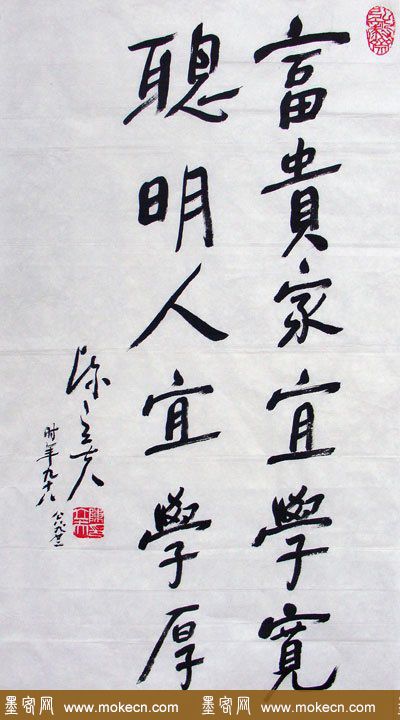 富貴家宜學寬
聰明人宜學厚
陳立夫
时年九十八
墨客网 www.mokecn.com 墨客网 www.mokecn.com